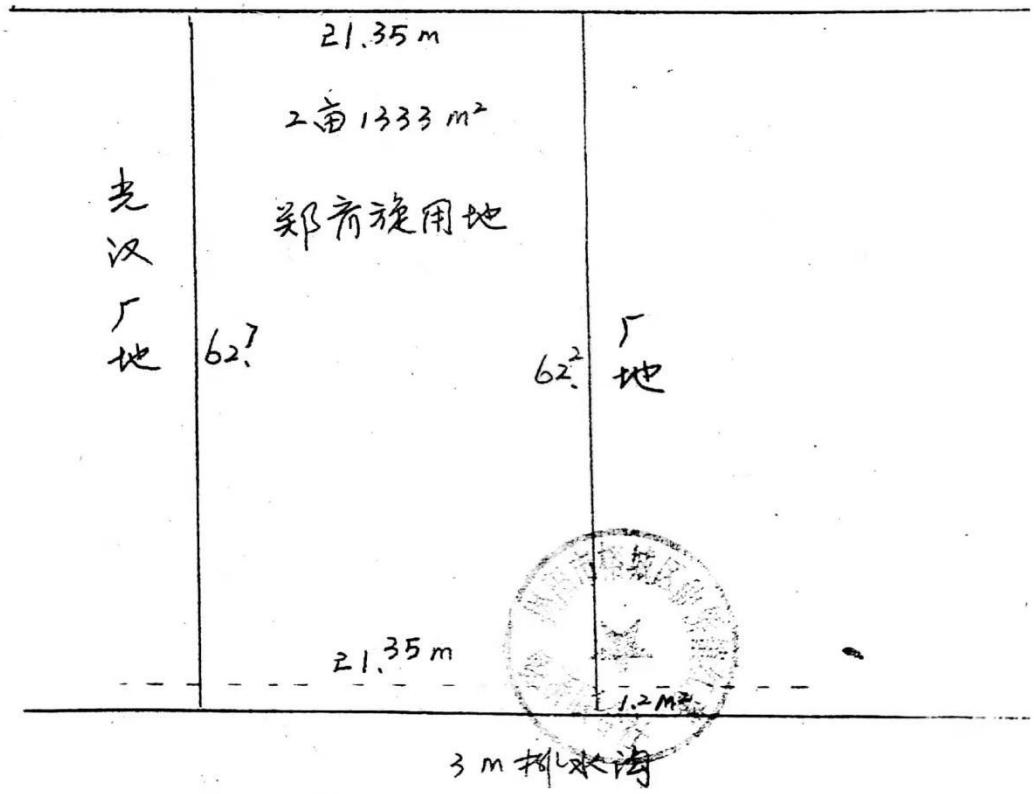 21.35m
2亩1333m²
郑育旋用地
光汉厂地
62.7
62.2
厂地
21.35m
1.2m²
3m排水沟